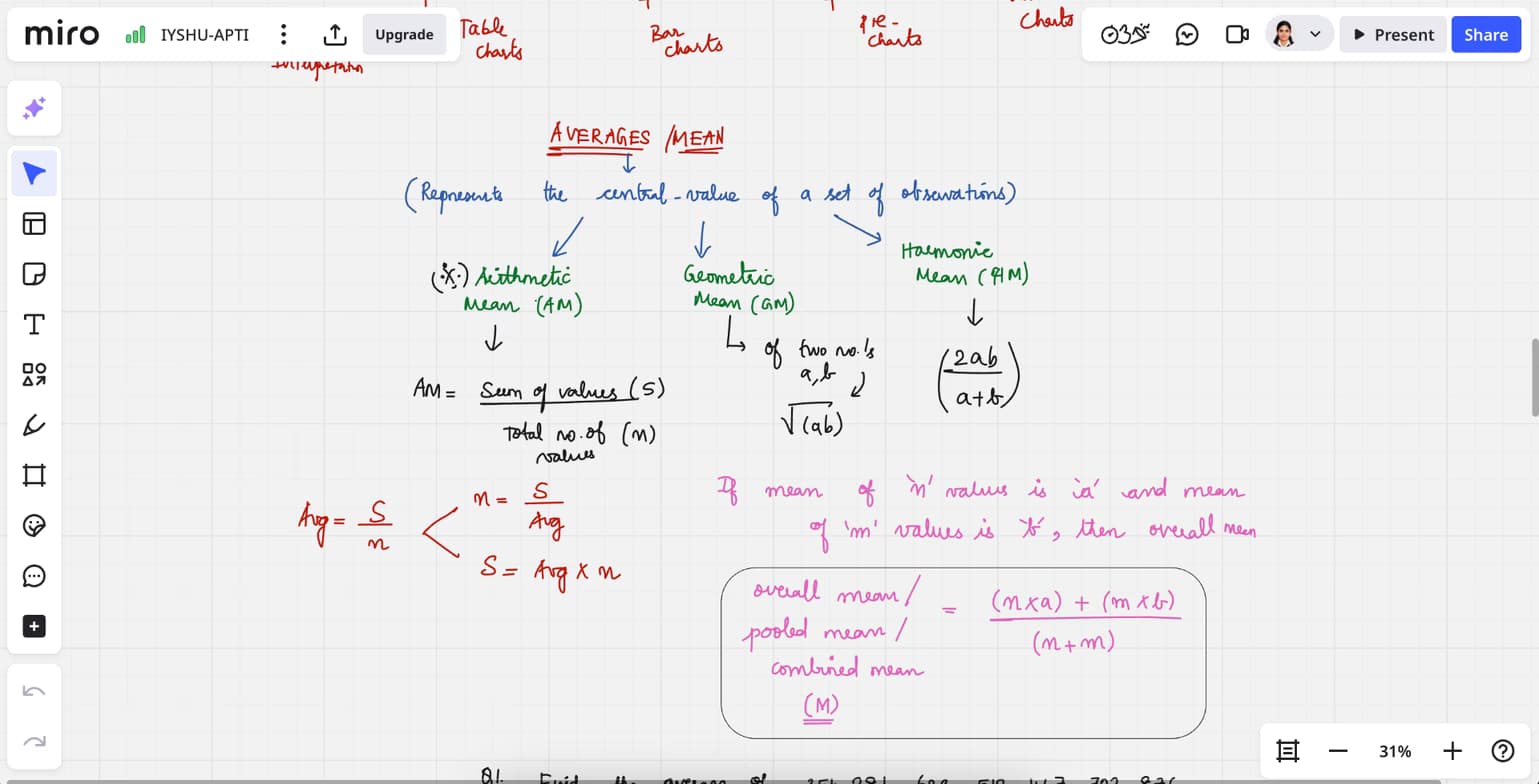 miro
IYSHU-APTI
Upgrade
Present
Share
Table
Charts
Bar
Charts
Pie -
Charts
Charts
AVERAGES / MEAN
(Represents the central-value of a set of observations)
Arithmetic
Mean (AM)
Geometric
Mean (GM)
Harmonic
Mean (HM)
AM = Sum of values (S)
Total no. of (n)
values
of two no.'s
a, b
√(ab)
(2ab
a+b)
Avg = S
n
n = S
Avg
S = Avg x n
If mean of 'n' values is 'a' and mean
of 'm' values is 'b', then overall mean
overall mean / = (n x a) + (m x b)
pooled mean / (n + m)
combined mean
(M)
31%
Q1. Find the average of